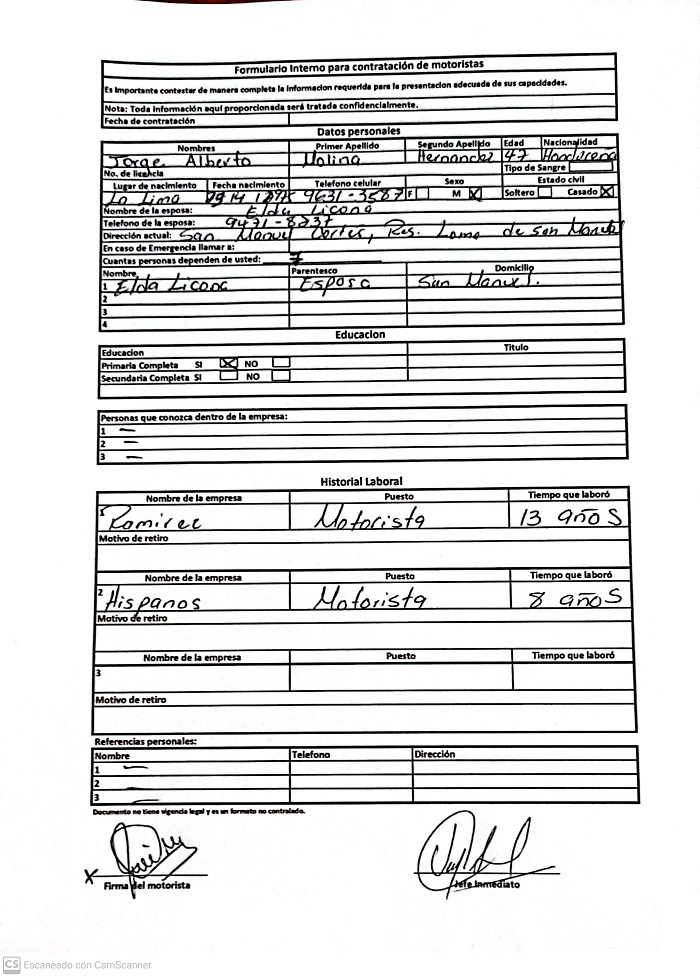 Formulario Interno para contratación de motoristas
Es Importante contestar de manera completa la informacion requerida para la presentacion adecuada de sus capacidades.
Nota: Toda información aquí proporcionada será tratada confidencialmente.
Fecha de contratación
Datos personales
Nombres Primer Apellido Segundo Apellido Edad Nacionalidad
Jorge Alberto Molina Hernandez 47 Hondureña
No. de licencia Tipo de Sangre
Lugar de nacimiento Fecha nacimiento Telefono celular Sexo Estado civil
La Lima 9631-3587 F M X Soltero Casado X
Nombre de la esposa: Elda Licona
Telefono de la esposa: 9471-8237
Dirección actual: San Manuel Cortes, Res. Loma de San Manuel
En caso de Emergencia llamar a:
Cuantas personas dependen de usted: 7
Nombre Parentesco Domicilio
1 Elda Licona Esposa San Manuel.
2
3
4
Educacion
Educacion Titulo
Primaria Completa SI X NO
Secundaria Completa SI NO
Personas que conozca dentro de la empresa:
1 —
2 —
3 —
Historial Laboral
Nombre de la empresa Puesto Tiempo que laboró
1 Ramirez Motorista 13 años
Motivo de retiro
Nombre de la empresa Puesto Tiempo que laboró
2 Hispanos Motorista 8 años
Motivo de retiro
Nombre de la empresa Puesto Tiempo que laboró
3
Motivo de retiro
Referencias personales:
Nombre Telefono Dirección
1 —
2 —
3 —
Documento no tiene vigencia legal y es un formato no controlado.
X
Firma del motorista Jefe Inmediato
CS Escaneado con CamScanner